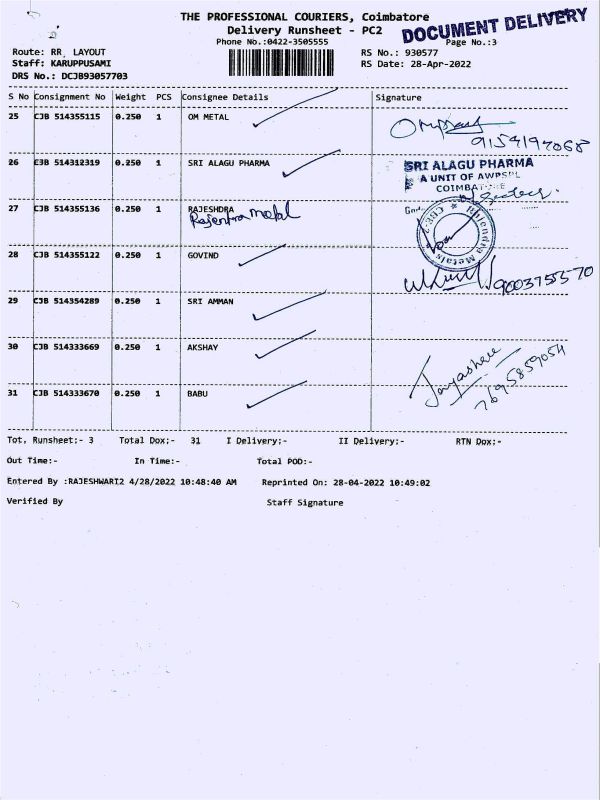 THE PROFESSIONAL COURIERS, Coimbatore
DOCUMENT DELIVERY
Delivery Runsheet - PC2
Phone No.:0422-3505555
Page No.:3
Route: RR, LAYOUT
RS No.: 930577
Staff: KARUPPUSAMI
RS Date: 28-Apr-2022
DRS No.: DCJB93057703
S No Consignment No Weight PCS Consignee Details Signature
25 CJB 514355115 0.250 1 OM METAL
9154197068
26 CJB 514312319 0.250 1 SRI ALAGU PHARMA
SRI ALAGU PHARMA
A UNIT OF AWPSPL
COIMBATORE
27 CJB 514355136 0.250 1 RAJESHDRA
Rajentra metal
Rajendra Metals ★ CBE-2 ★
28 CJB 514355122 0.250 1 GOVIND
9003755570
29 CJB 514354289 0.250 1 SRI AMMAN
30 CJB 514333669 0.250 1 AKSHAY
Jayashree
7695859054
31 CJB 514333670 0.250 1 BABU
Tot. Runsheet:- 3 Total Dox:- 31 I Delivery:- II Delivery:- RTN Dox:-
Out Time:- In Time:- Total POD:-
Entered By :RAJESHWARI2 4/28/2022 10:48:40 AM Reprinted On: 28-04-2022 10:49:02
Verified By Staff Signature